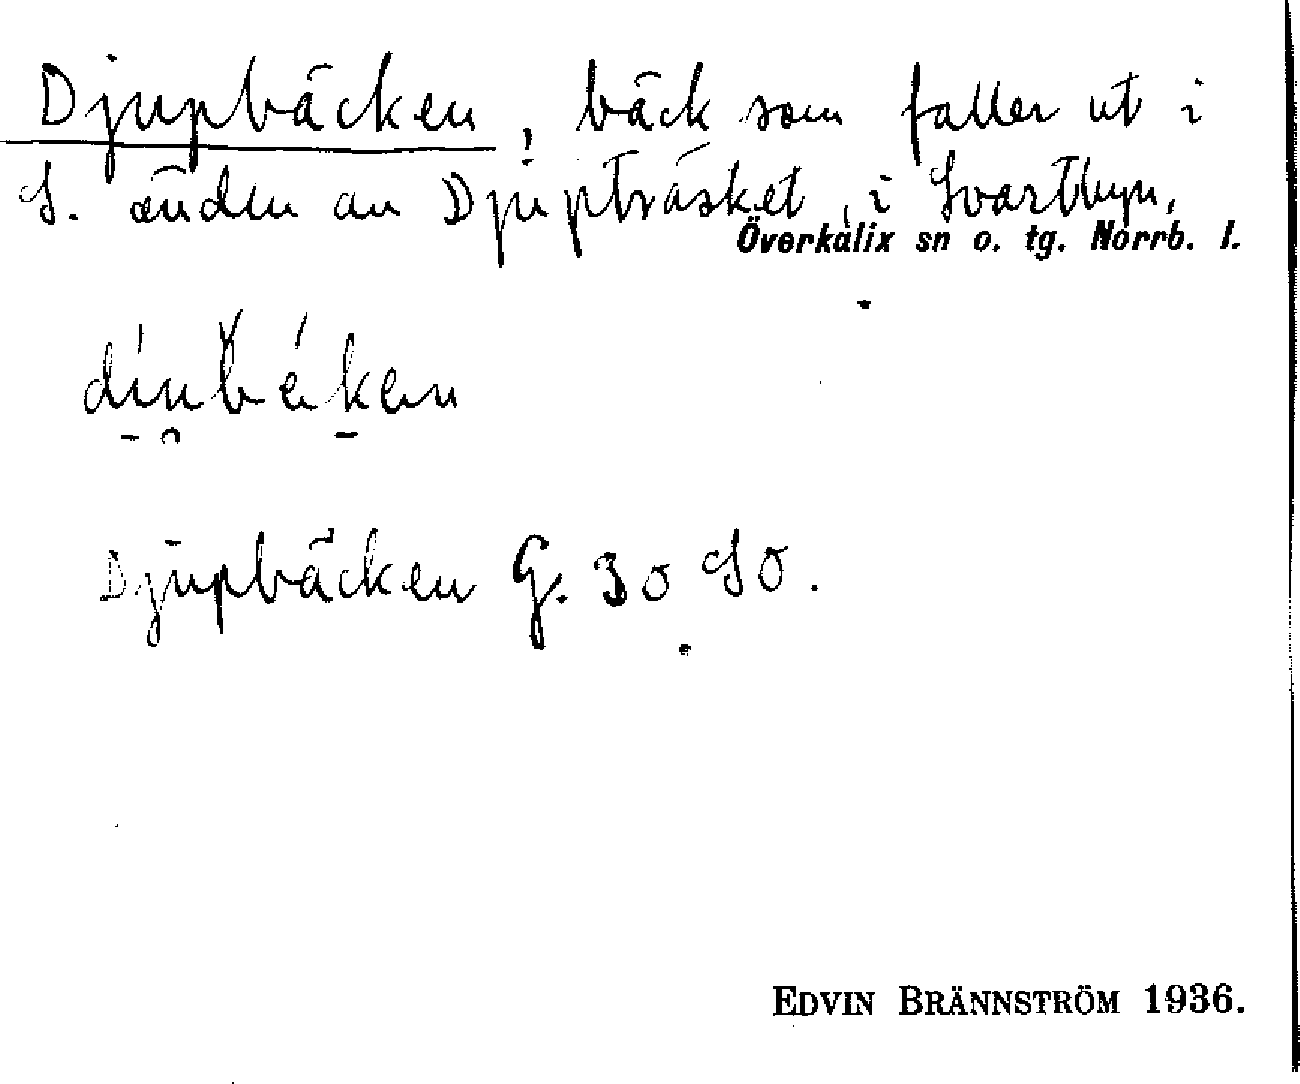 Djupbäcken, bäck som faller ut i
S. änden av Djupträsket, i Svartbyn,
Överkalix sn o. tg. Norrb. l.
Djupbäcken G. 30 SO.
EDVIN BRÄNNSTRÖM 1936.